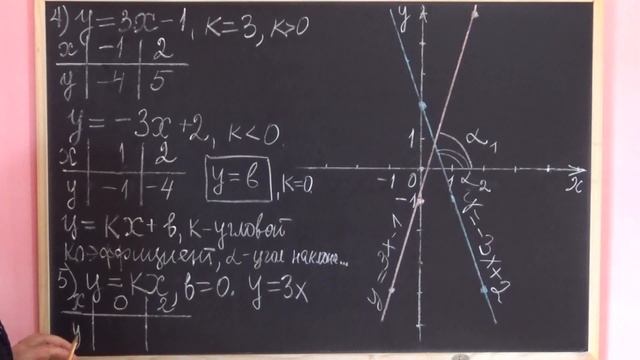 4) y = 3x - 1, к = 3, к > 0
x | -1 | 2
y | -4 | 5
y = -3x + 2, к < 0
x | 1 | 2
y | -1 | -4
y = в, к = 0
y = кx + в, к - угловой
коэффициент, α - угол наклон...
5) y = кx, в = 0. y = 3x
x | 0 | 2
y
y
1
α₁
-1 0 1 α₂ x
-1
y = 3x - 1
y = -3x + 2